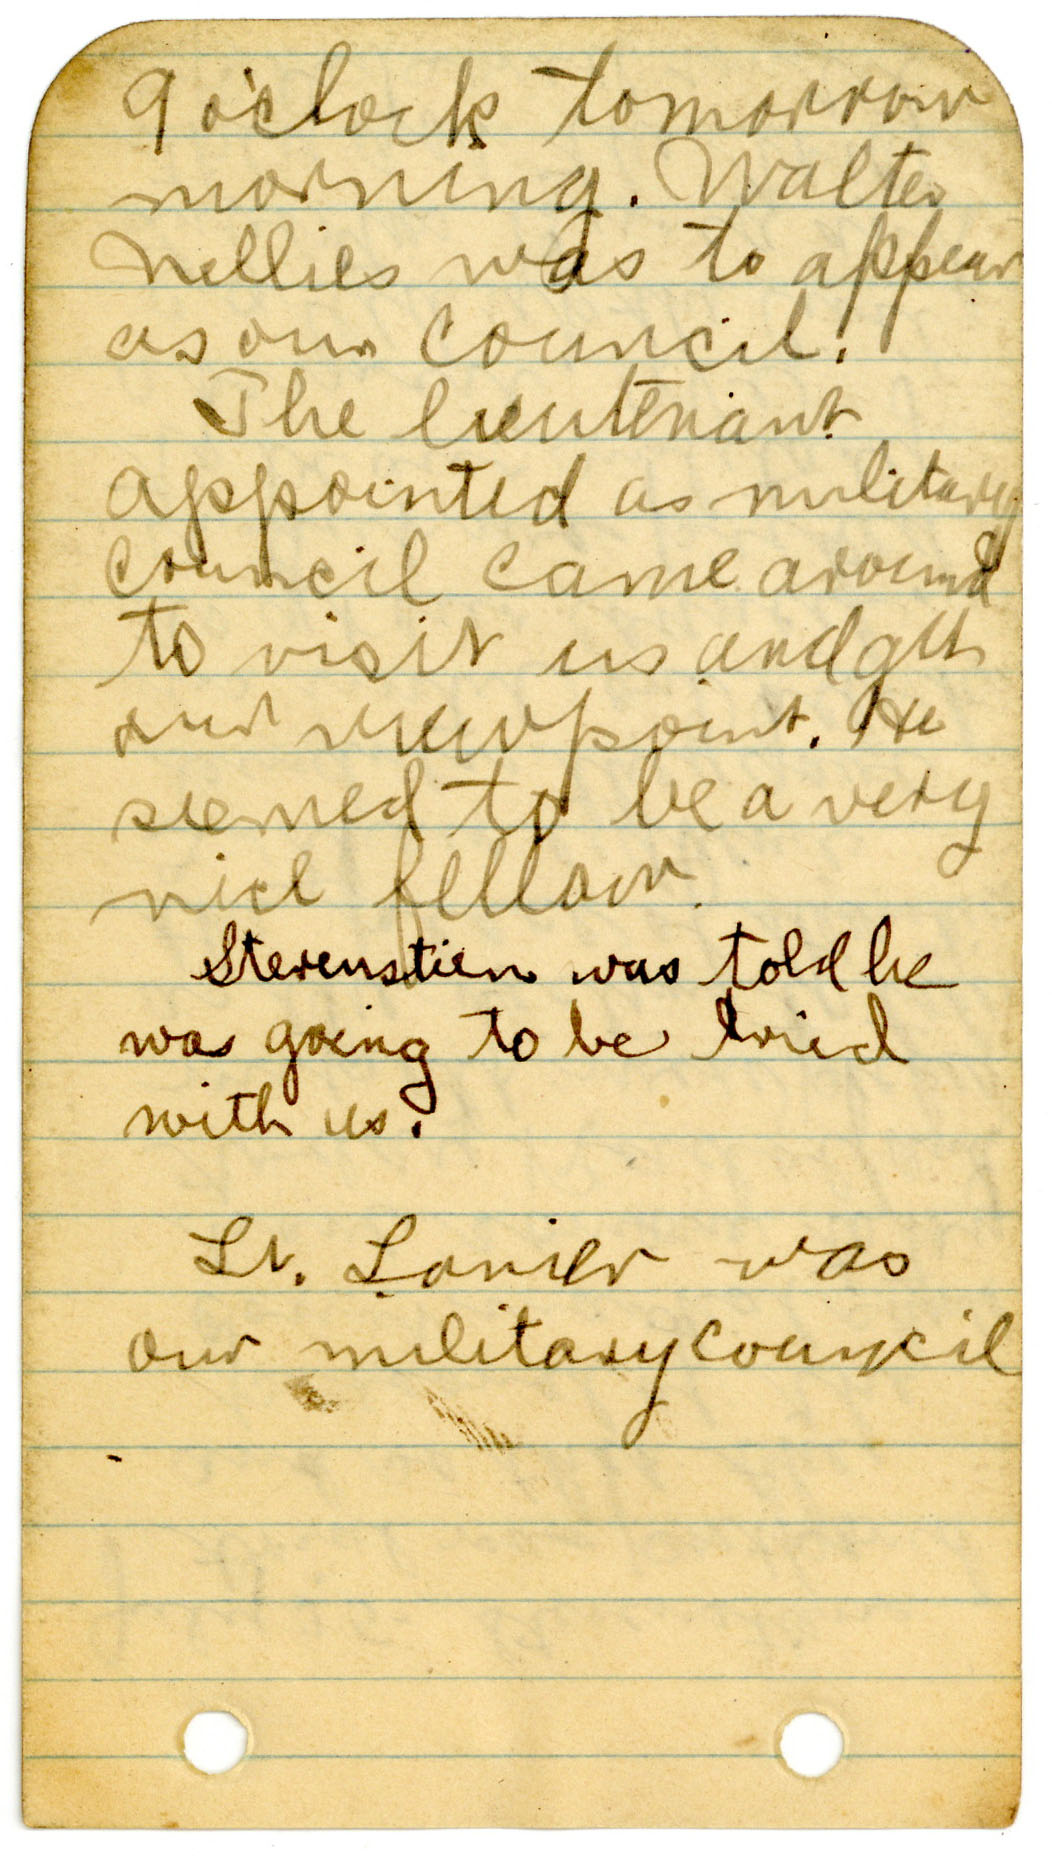 9 o'clock tomorrow
morning. Walter
Nellies was to appear
as our council.
The lieutenant
appointed as military
council came around
to visit us and get
our viewpoint. He
seemed to be a very
nice fellow.
Stevenstien was told he
was going to be tried
with us.
Lt. Lanier was
our military council